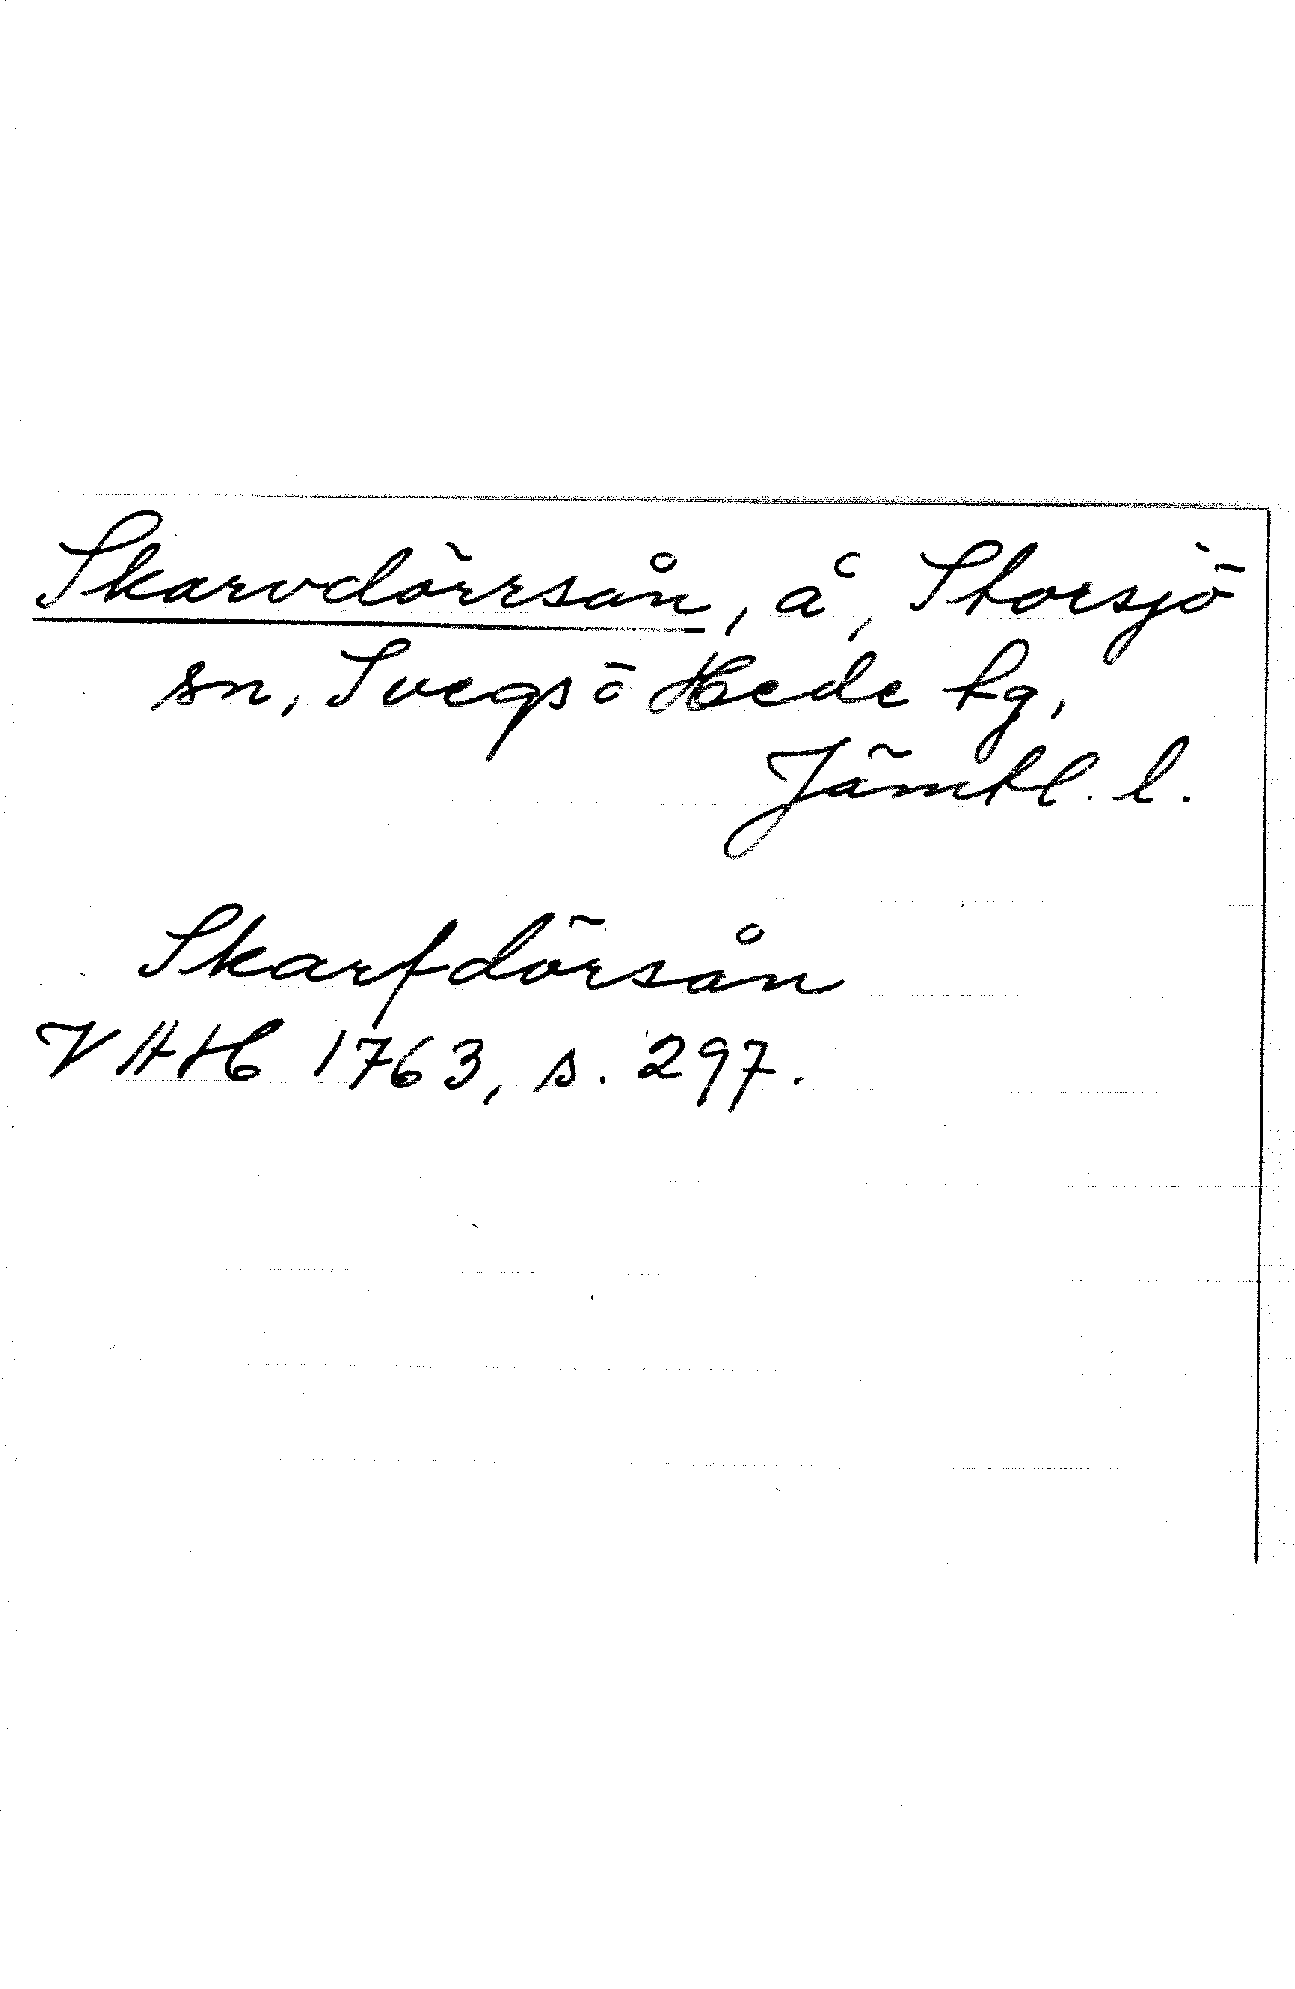 Skarvdörrsån, å, Storsjö
sn, Svegs ö Hede tg,
Jämtl. l.
Skarfdörsån
VAH 1763, s. 297.